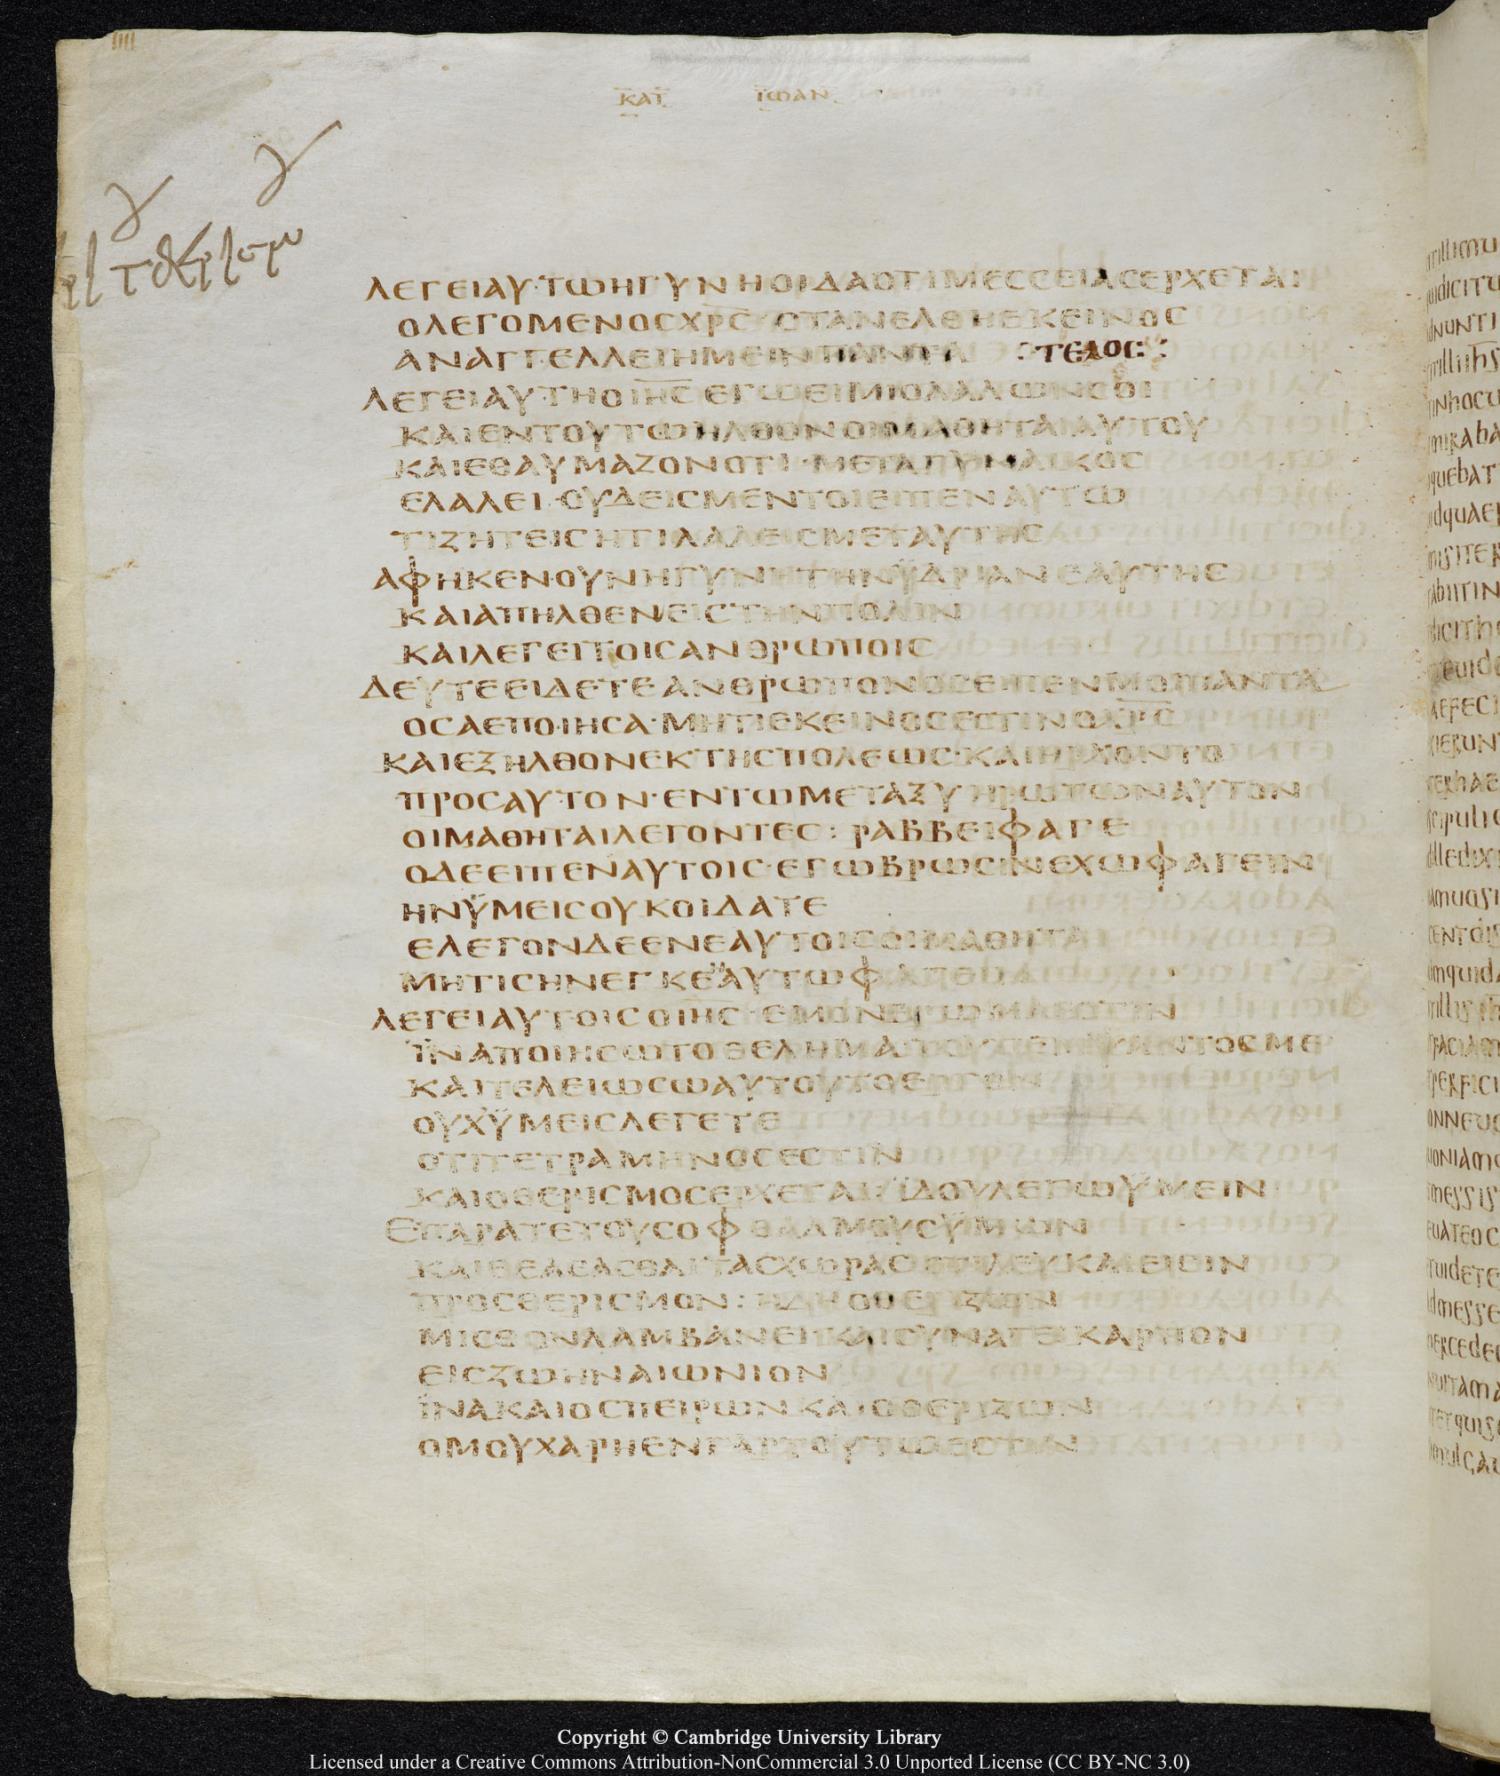 ΚΑΤ ΙΩΑΝ
ΛΕΓΕΙΑΥΤΩΗΓΥΝΗΟΙΔΑΟΤΙΜΕCCΕΙΑCΕΡΧΕΤΑΙ
ΟΛΕΓΟΜΕΝΟCΧΡC ΟΤΑΝΕΛΘΗΕΚΕΙΝΟC
ΑΝΑΓΓΕΛΛΕΙΗΜΕΙΝΠΑΝΤΑ :ΤΕΛΟC:
ΛΕΓΕΙΑΥΤΗΟΙΗC ΕΓΩΕΙΜΙΟΛΑΛΩΝCΟΙ
ΚΑΙΕΝΤΟΥΤΩΗΛΘΟΝΟΙΜΑΘΗΤΑΙΑΥΤΟΥ
ΚΑΙΕΘΑΥΜΑΖΟΝΟΤΙ·ΜΕΤΑΓΥΝΑΙΚΟC
ΕΛΑΛΕΙ·ΟΥΔΕΙCΜΕΝΤΟΙΕΙΠΕΝΑΥΤΩ
ΤΙΖΗΤΕΙCΗΤΙΛΑΛΕΙCΜΕΤΑΥΤΗC
ΑΦΗΚΕΝΟΥΝΗΓΥΝΗΤΗΝΫΔΡΙΑΝΕΑΥΤΗC
ΚΑΙΑΠΗΛΘΕΝΕΙCΤΗΝΠΟΛΙΝ
ΚΑΙΛΕΓΕΙΤΟΙCΑΝΘΡΩΠΟΙC
ΔΕΥΤΕΕΙΔΕΤΕΑΝΘΡΩΠΟΝΟCΕΙΠΕΝΜΟΙΠΑΝΤΑ
ΟCΑΕΠΟΙΗCΑ·ΜΗΤΙΕΚΕΙΝΟCΕCΤΙΝΟΧΡC
ΚΑΙΕΞΗΛΘΟΝΕΚΤΗCΠΟΛΕΩC·ΚΑΙΗΡΧΟΝΤΟ
ΠΡΟCΑΥΤΟΝ·ΕΝΤΩΜΕΤΑΞΥΗΡΩΤΩΝΑΥΤΟΝ
ΟΙΜΑΘΗΤΑΙΛΕΓΟΝΤΕC: ΡΑΒΒΕΙΦΑΓΕ
ΟΔΕΕΙΠΕΝΑΥΤΟΙC·ΕΓΩΒΡΩCΙΝΕΧΩΦΑΓΕΙΝ
ΗΝΫΜΕΙCΟΥΚΟΙΔΑΤΕ
ΕΛΕΓΟΝΔΕΕΝΕΑΥΤΟΙCΟΙΜΑΘΗΤΑΙ
ΜΗΤΙCΗΝΕΓΚΕΑΥΤΩΦΑΓΕΙΝ
ΛΕΓΕΙΑΥΤΟΙCΟΙΗC·ΕΜΟΝΒΡΩΜΑΕCΤΙΝ
ΪΝΑΠΟΙΗCΩΤΟΘΕΛΗΜΑΤΟΥΠΕΜΨΑΝΤΟCΜΕ
ΚΑΙΤΕΛΕΙΩCΩΑΥΤΟΥΤΟΕΡΓΟΝ
ΟΥΧΫΜΕΙCΛΕΓΕΤΕ
ΟΤΙΤΕΤΡΑΜΗΝΟCΕCΤΙΝ
ΚΑΙΟΘΕΡΙCΜΟCΕΡΧΕΤΑΙ: ΪΔΟΥΛΕΓΩΫΜΕΙΝ
ΕΠΑΡΑΤΕΤΟΥCΟΦΘΑΛΜΟΥCΫΜΩΝ
ΚΑΙΘΕΑCΑCΘΑΙΤΑCΧΩΡΑCΟΤΙΛΕΥΚΑΙΕΙCΙΝ
ΠΡΟCΘΕΡΙCΜΟΝ: ΗΔΗΟΘΕΡΙΖΩΝ
ΜΙCΘΟΝΛΑΜΒΑΝΕΙΚΑΙCΥΝΑΓΕΙΚΑΡΠΟΝ
ΕΙCΖΩΗΝΑΙΩΝΙΟΝ
ΪΝΑΚΑΙΟCΠΕΙΡΩΝΚΑΙΟΘΕΡΙΖΩΝ
ΟΜΟΥΧΑΡΗΕΝΓΑΡΤΟΥΤΩΕCΤΙΝ
Copyright © Cambridge University Library
Licensed under a Creative Commons Attribution-NonCommercial 3.0 Unported License (CC BY-NC 3.0)